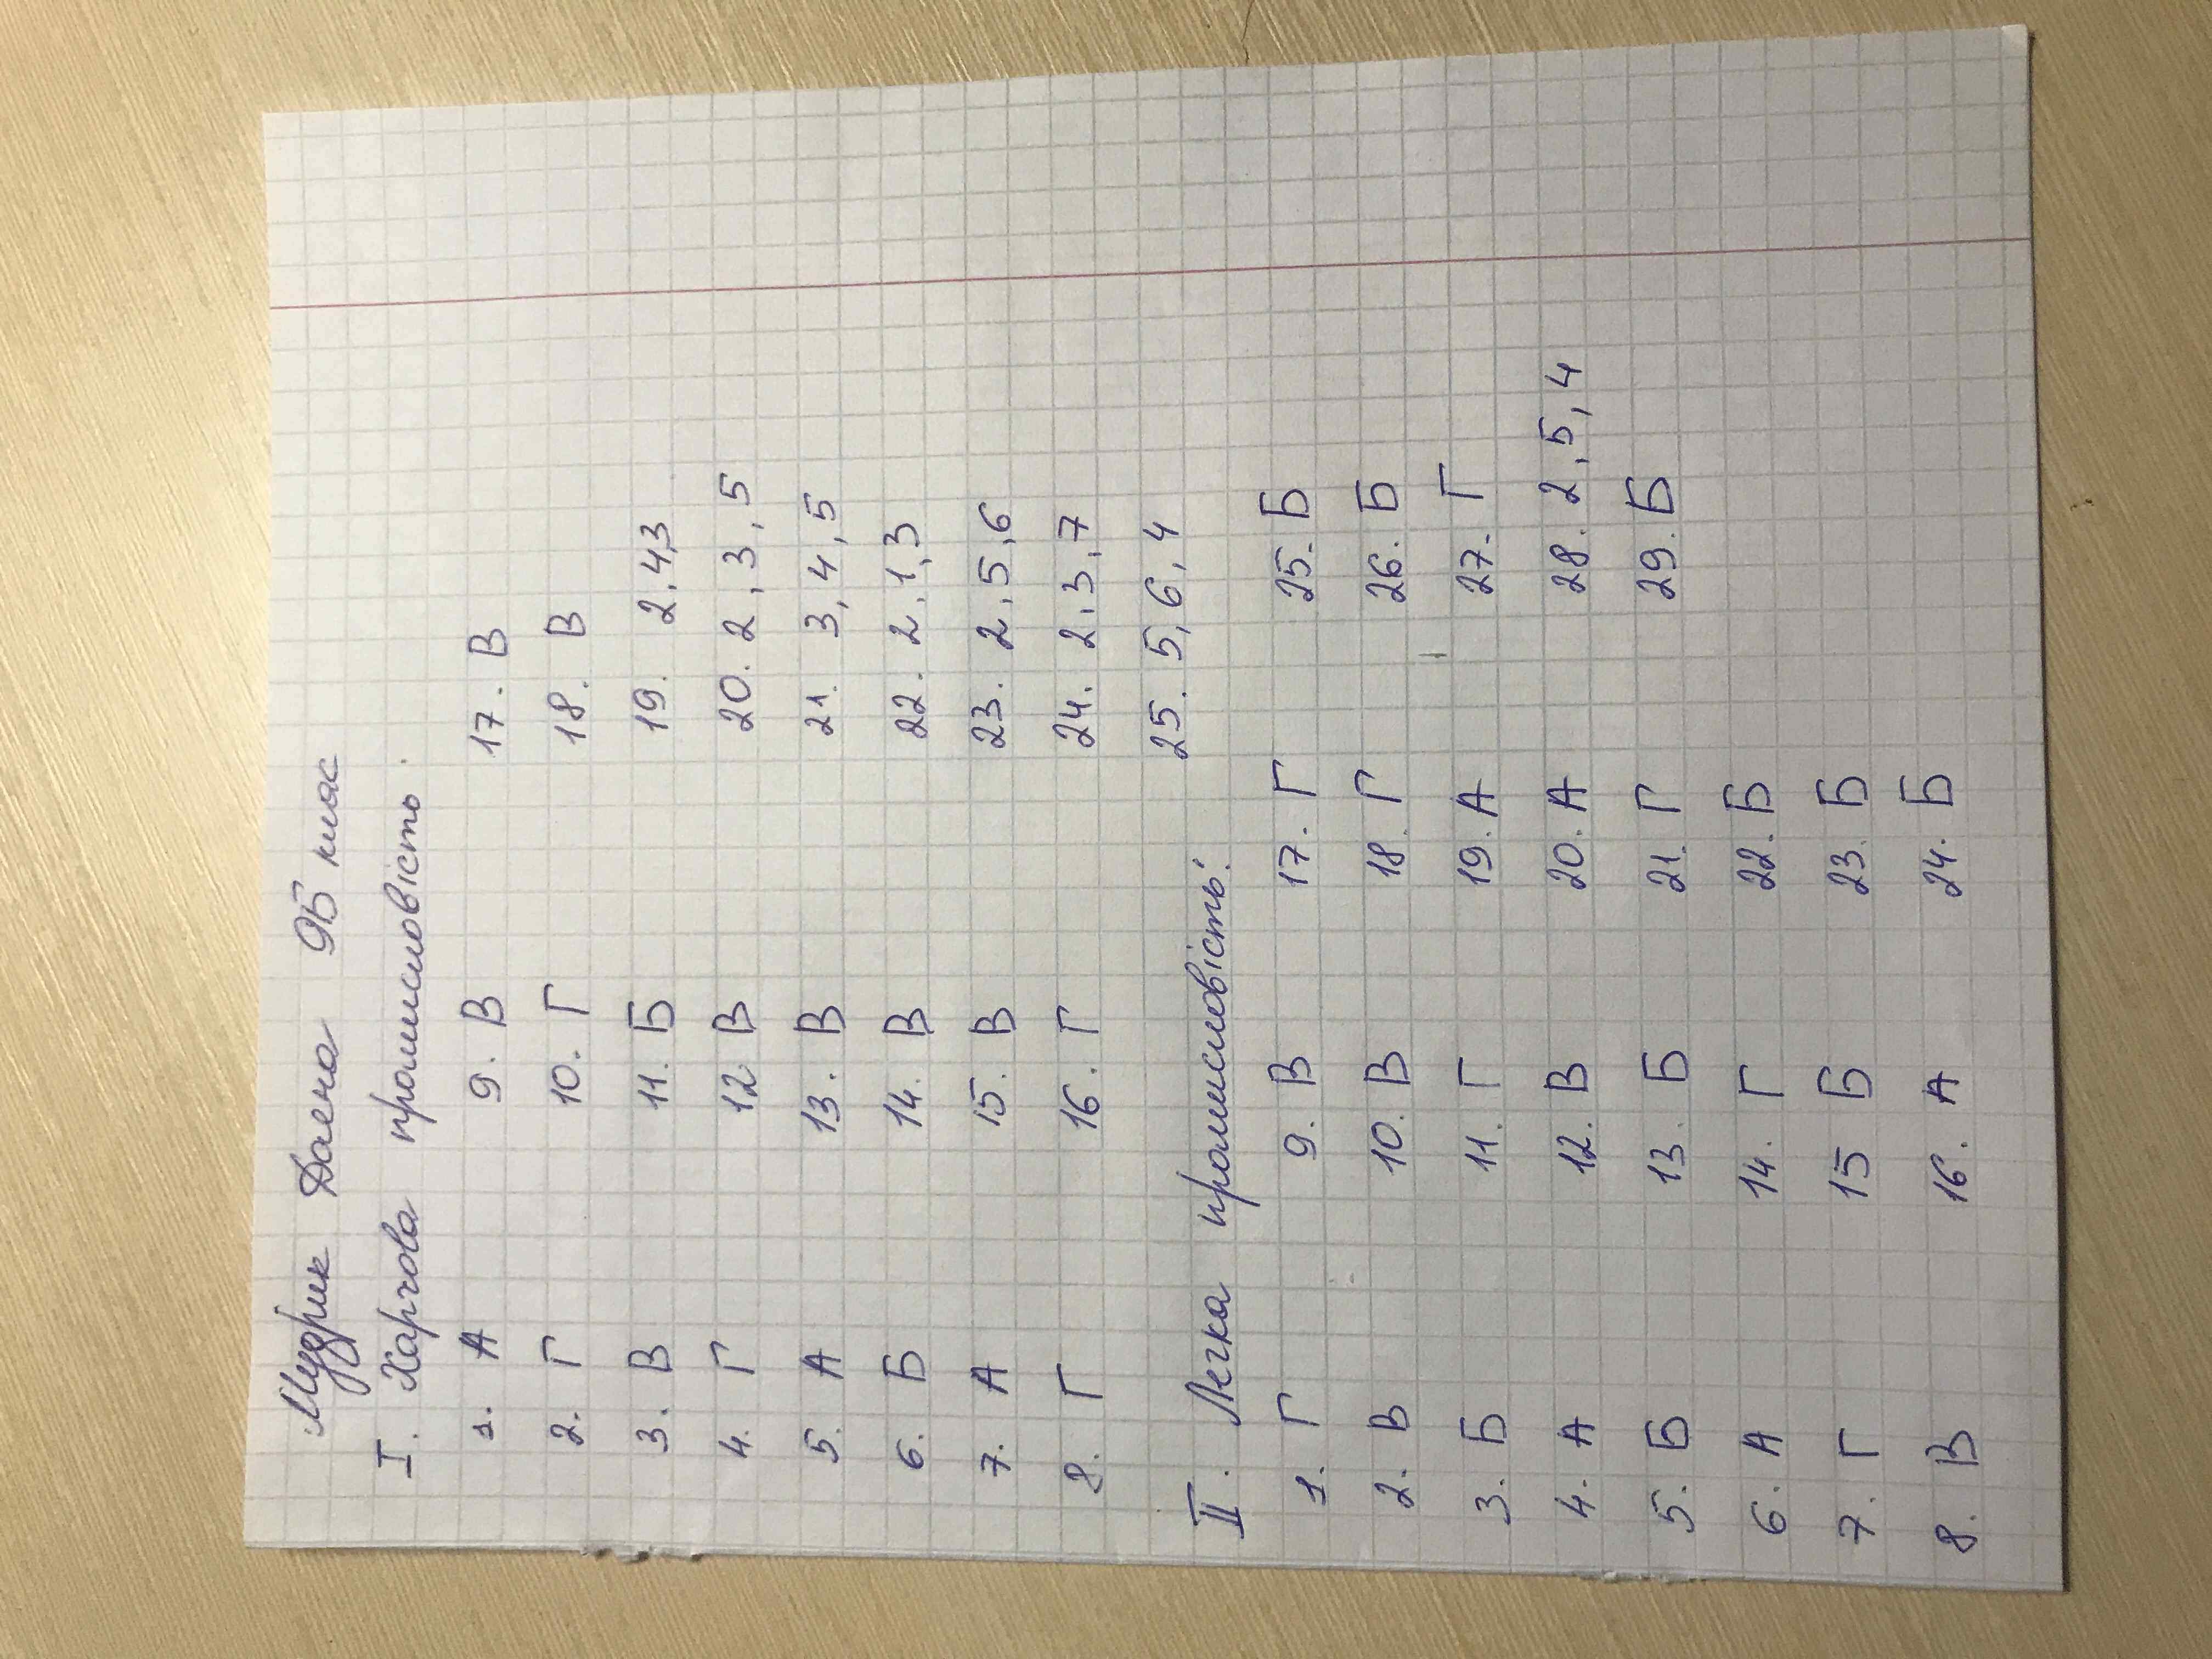 Мудрик Даяна 9Б клас
I. Харчова промисловість.
1. А 9. В 17. В
2. Г 10. Г 18. В
3. В 11. Б 19. 2,4,3
4. Г 12. В 20. 2,3,5
5. А 13. В 21. 3,4,5
6. Б 14. В 22. 2.1,3
7. А 15. В 23. 2,5,6
8. Г 16. Г 24. 2,3,7
25. 5,6,4
II. Легка промисловість:
1. Г 9. В 17. Г 25. Б
2. В 10. В 18. Г 26. Б
3. Б 11. Г 19. А 27. Г
4. А 12. В 20. А 28. 2,5,4
5. Б 13. Б 21. Г 29. Б
6. А 14. Г 22. Б
7. Г 15 Б 23. Б
8. В 16. А 24. Б